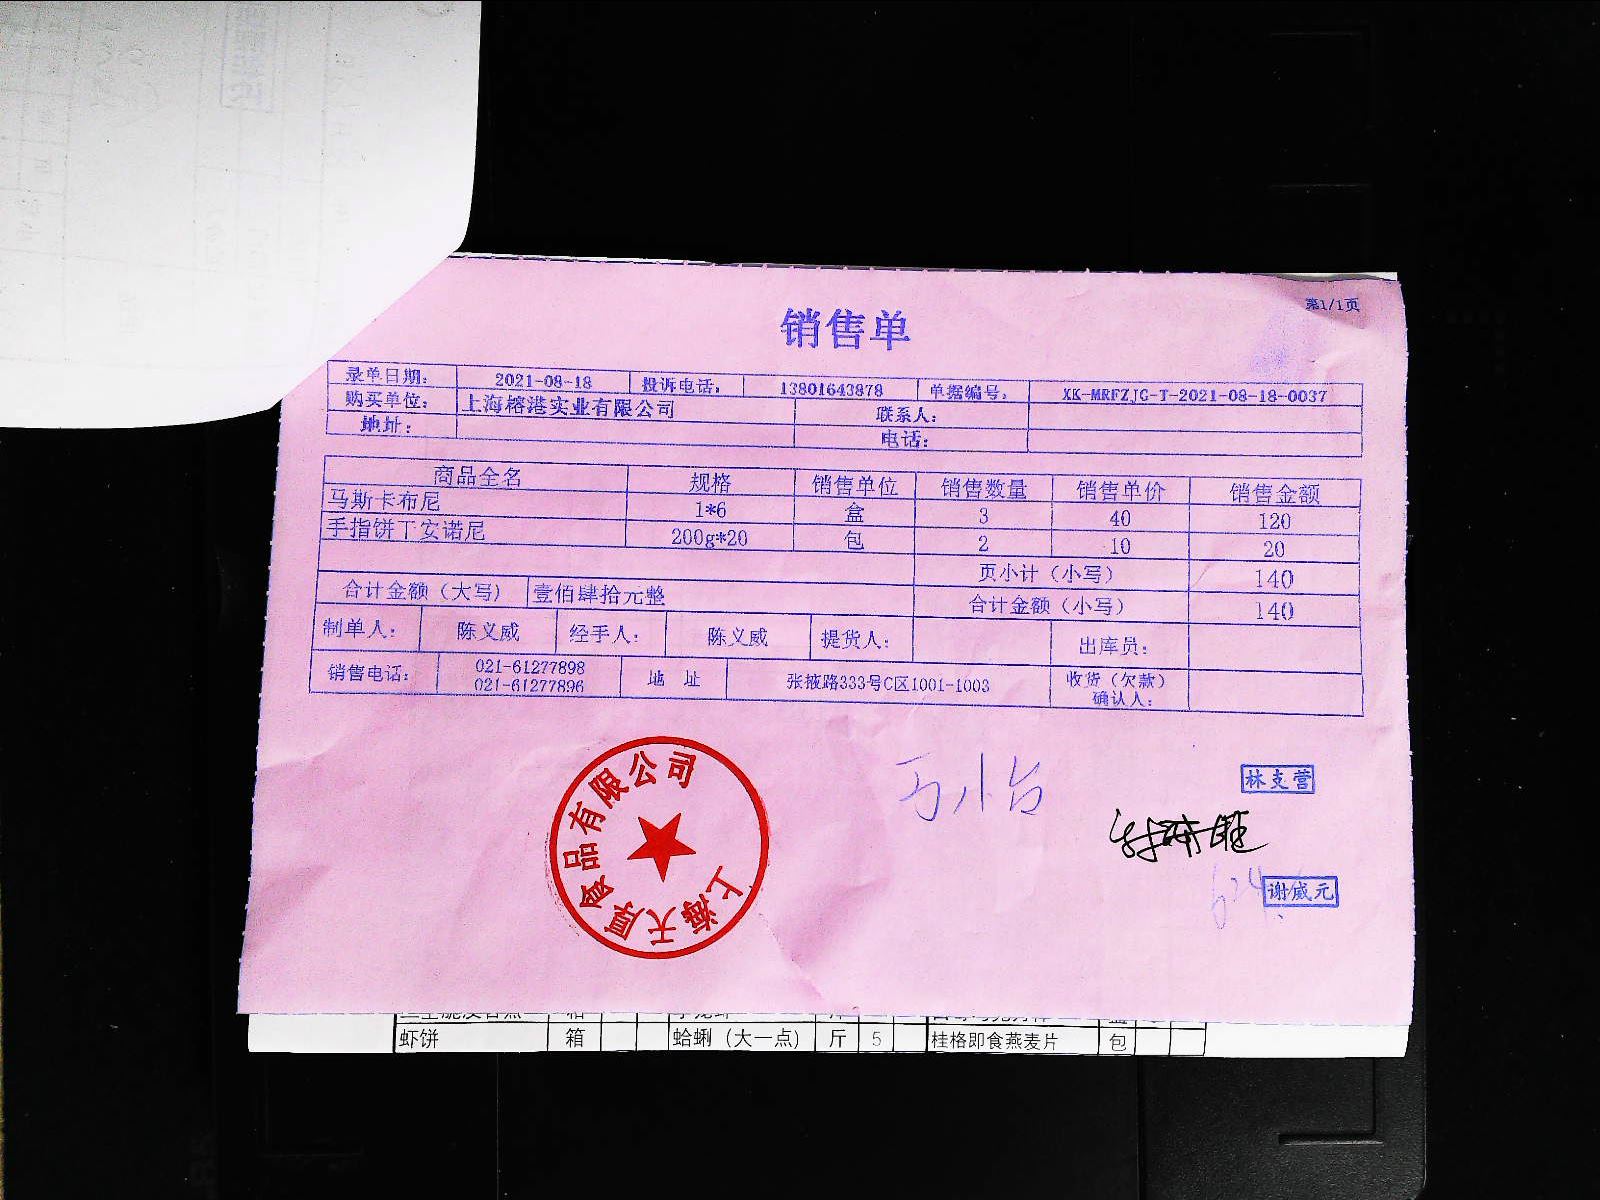 第1/1页
销售单
录单日期： 2021-08-18 投诉电话： 13801643878 单据编号： XK-MRFZJG-T-2021-08-18-0037
购买单位： 上海榕港实业有限公司 联系人：
地址： 电话：
商品全名 规格 销售单位 销售数量 销售单价 销售金额
马斯卡布尼 1*6 盒 3 40 120
手指饼干安诺尼 200g*20 包 2 10 20
页小计（小写） 140
合计金额（大写） 壹佰肆拾元整 合计金额（小写） 140
制单人： 陈义威 经手人： 陈义威 提货人： 出库员：
销售电话： 021-61277898 021-61277896 地 址 张掖路333号C区1001-1003 收货（欠款）确认人：
上海天厚食品有限公司
林支营
624
谢威元
虾饼 箱 蛤蜊（大一点） 斤 5 桂格即食燕麦片 包